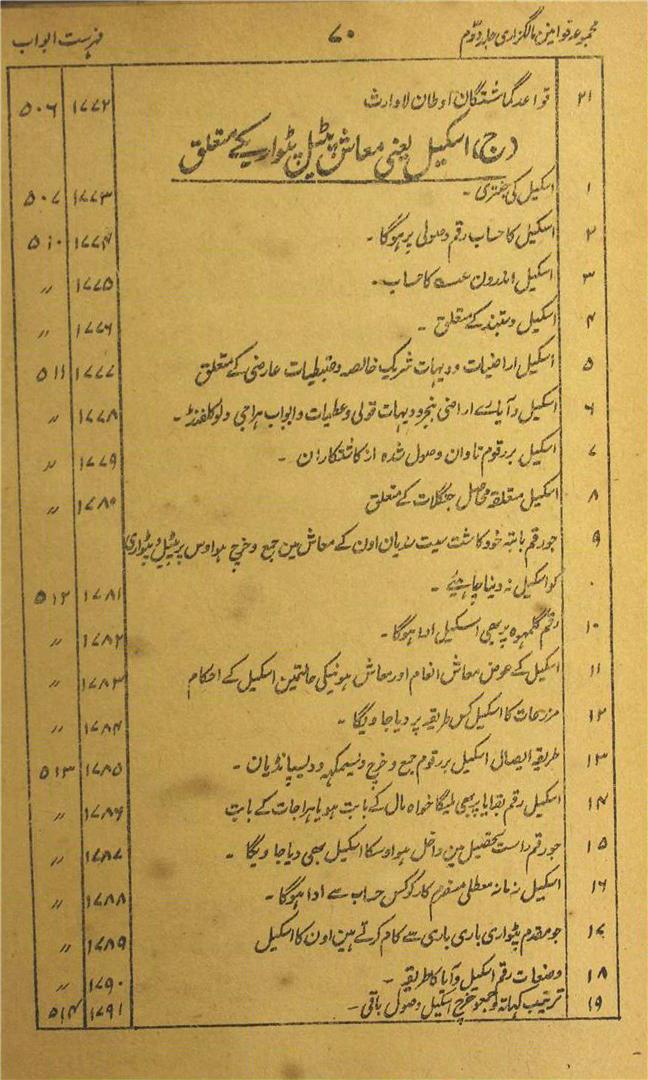 مجموعہ قوانین مالگزاری جلد دوم ۷۰ فہرست ابواب
۲۱ قواعد گماشتگان اوطان لاوارث ۱۷۷۲ ۵۰۶
(ج) اسکیل یعنی معاش پٹیل پٹواریکے متعلق
۱ اسکیل کی ۔ ۱۷۷۳ ۵۰۷
۲ اسکیل کا حساب رقم وصولی پر ہوگا ۔ ۱۷۷۴ ۵۱۰
۳ اسکیل اندرون کا حساب ۔ ۱۷۷۵ ״
۴ اسکیل کے متعلق ۔ ۱۷۷۶ ״
۵ اسکیل اراضیات و دیہات شریک خالصہ و ضبطیات عارضی کے متعلق ۱۷۷۷ ۵۱۱
۶ اسکیل اراضی بنجر و دیہات قولی و عطیات و ابواب ہراجی و لوکلفنڈ ۔ ۱۷۷۸ ״
۷ اسکیل بر رقوم تاوان وصول شدہ از کاشتکاران ۔ ۱۷۷۹ ״
۸ اسکیل متعلقہ محاصل جنگلات کے متعلق ۱۷۸۰ ״
۹ جو رقم بابتہ خود کاشت سیت سندیان اون کے معاش مین جمع و خرچ ہو اوس پر پٹیل و پٹواری
کو اسکیل نہ دینا چاہئیے ۔ ۱۷۸۱ ۵۱۲
۱۰ رقم گلمہوہ پر بھی اسکیل ادا ہوگا ۔ ۱۷۸۲ ״
۱۱ اسکیل کے عوض معاش انعام اور معاش ہونیکی حالتمین اسکیل کے احکام ۱۷۸۳ ״
۱۲ مزرعات کا اسکیل کس طریقہ پر دیا جاویگا ۔ ۱۷۸۴ ״
۱۳ طریقہ ایصال اسکیل بر رقوم جمع و خرچ و دیسپانڈیان ۔ ۱۷۸۵ ۵۱۳
۱۴ اسکیل رقم بقایا پر بھی لیگا خواہ مال کے بابت ہو یا ہراجات کے بابت ۱۷۸۶ ״
۱۵ جو رقم راست تحصیل مین داخل ہو اوسکا اسکیل بھی دیا جاویگا ۔ ۱۷۸۷ ״
۱۶ اسکیل زمانہ معطلی منصرم کار کو کس حساب سے ادا ہوگا ۔ ۱۷۸۸ ״
۱۷ جو مقدم پٹواری باری باری سے کام کرتے ہین اون کا اسکیل ۱۷۸۹ ״
۱۸ وضعات رقم اسکیل و آیا کا طریقہ ۔ ۱۷۹۰ ״
۱۹ ترتیب کہاتہ جمع و خرچ اسکیل وصول باقی ۔ ۱۷۹۱ ۵۱۴